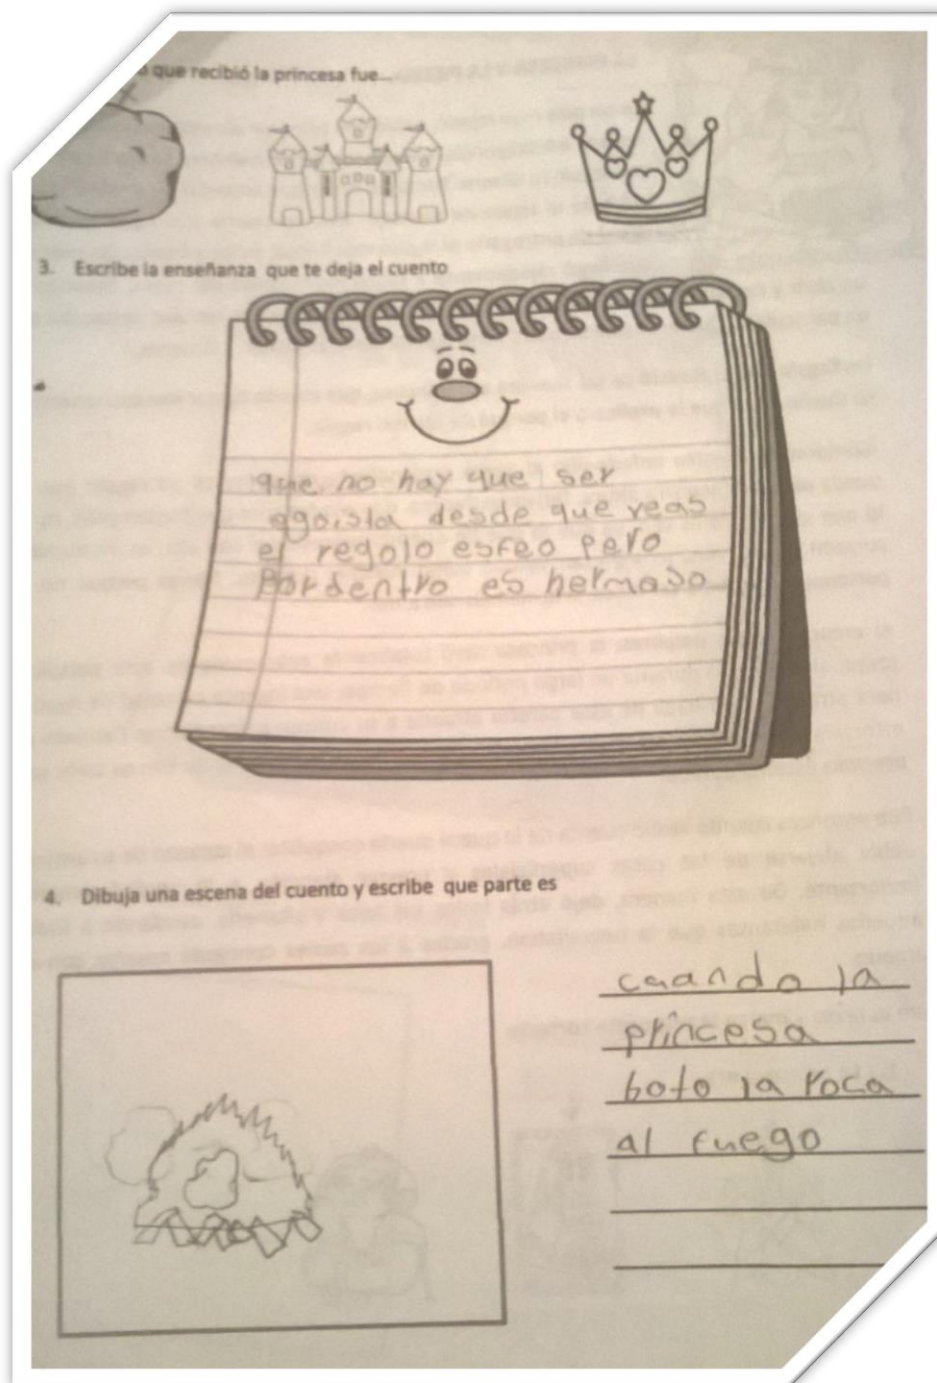 que recibió la princesa fue...
3. Escribe la enseñanza que te deja el cuento
que no hay que ser
egoista desde que veas
el regalo esfeo pero
Pordentro es hermoso
4. Dibuja una escena del cuento y escribe que parte es
cuando la
princesa
boto la roca
al fuego